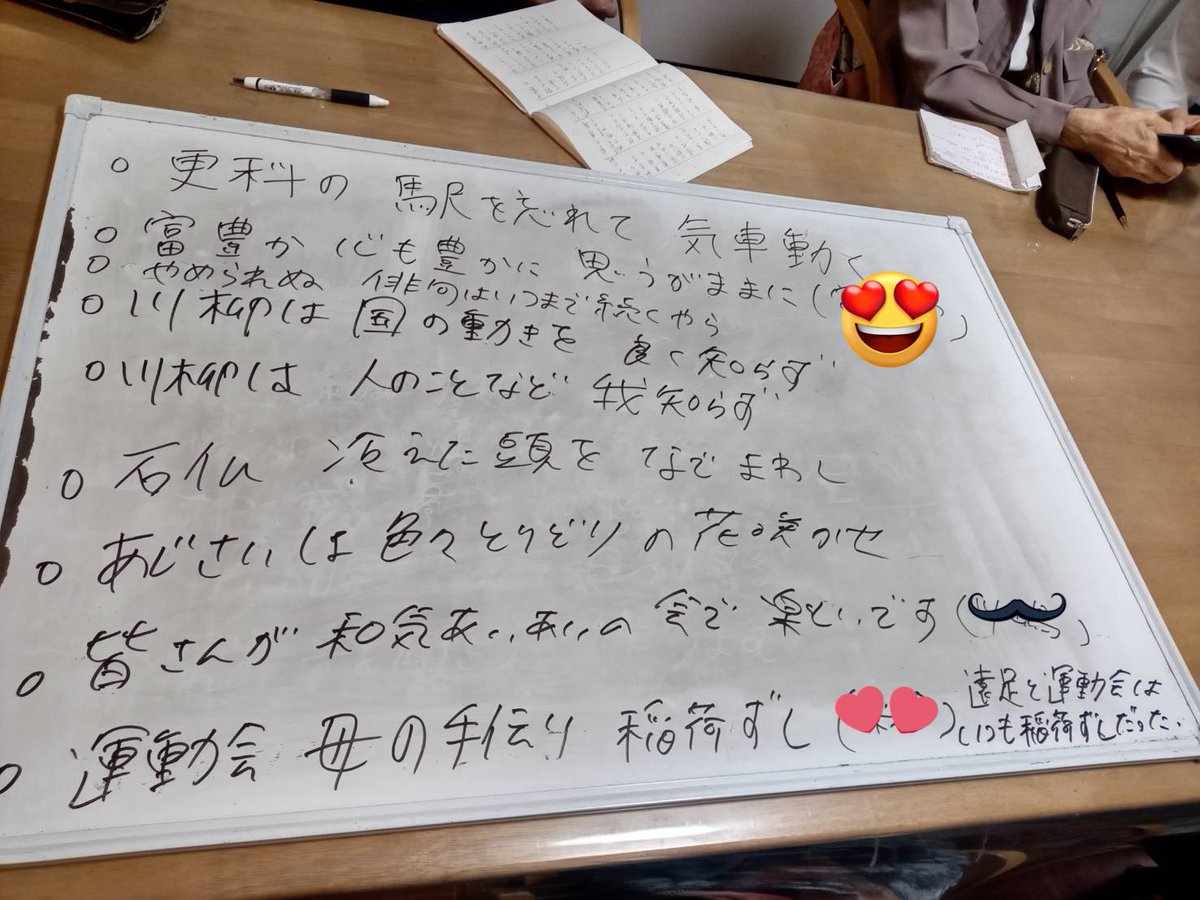 ○ 更科の 駅を忘れて 気車動く
○ 富豊か 心も豊かに 思うがままに(
○ やめられぬ 俳句はいつまで続くやら
○ 川柳は 国の動きを 良く知らず
○ 川柳は 人のことなど 我知らず
○ 石仏 冷えた頭を なでまわし
○ あじさいは 色々とりどりの 花咲かせ
○ 皆さんが 和気あいあいの 会で 楽しいです(
○ 運動会 母の手伝い 稲荷ずし ( ) 遠足と運動会は
いつも稲荷ずしだった.